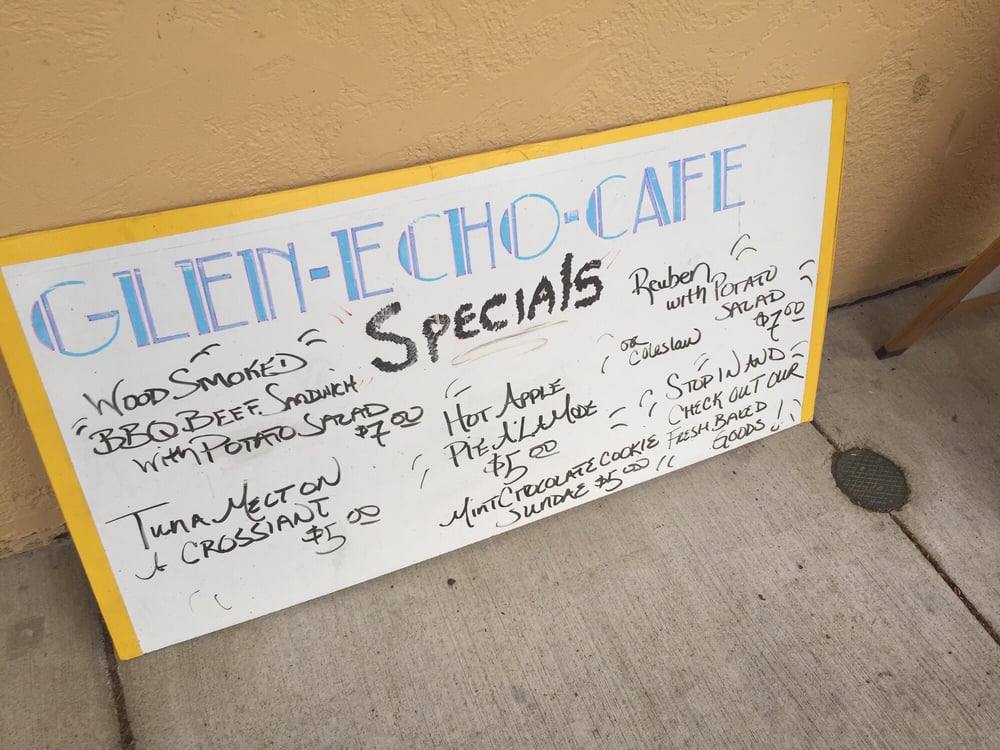 GLEN-ECHO-CAFE
SPECIALS
WOOD SMOKED
BBQ BEEF SANDWICH
WITH POTATO SALAD
$7.00
TUNA MELT ON
A CROSSIANT
$5.00
HOT APPLE
PIE A'LA MODE
$5.00
MINT CHOCOLATE COOKIE
SUNDAE $5.00 !!
Reuben
with POTATO
SALAD
$7.00
or
Coleslaw
STOP IN AND
CHECK OUT OUR
FRESH BAKED
GOODS !!